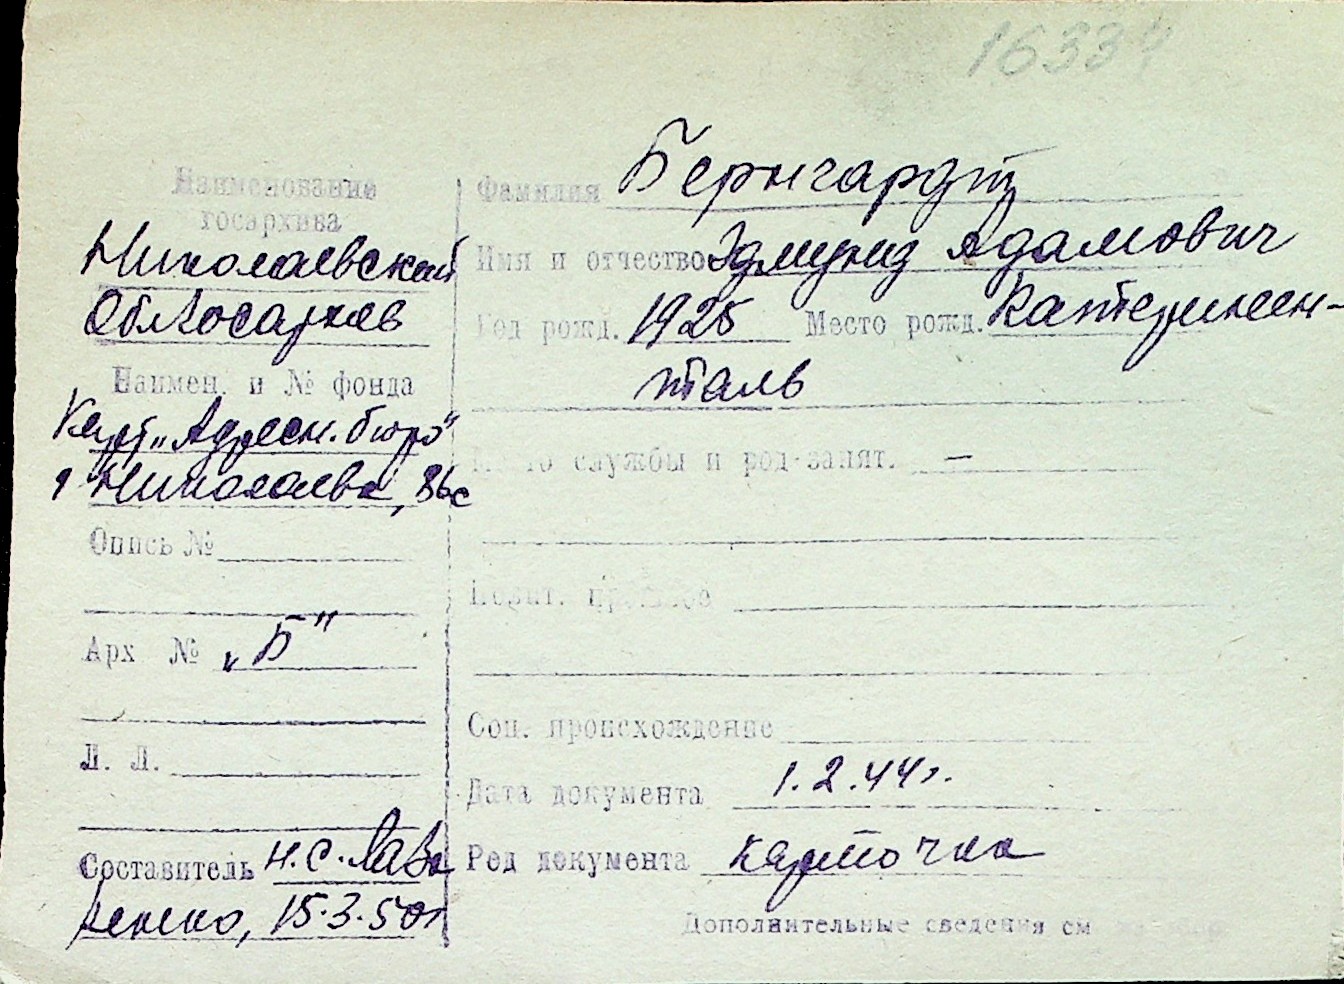 1633
Наименование
госархива
Николаевский
Облгосархив
Наимен. и № фонда
Карт. „Адресн. бюро"
г Николаева, 86с
Опись №
Арх № „Б"
Л. Л.
Составитель Н. С. Лавр
ненко, 15.3.50г
Фамилия Бернгардт
Имя и отчество Эдмунд Адамович
Год рожд. 1925 Место рожд. Катеринен-
таль
службы и род занят. —
Полит. прошлое
Соц. происхождение
Дата документа 1.2.44г.
Род документа карточка
Дополнительные сведения см